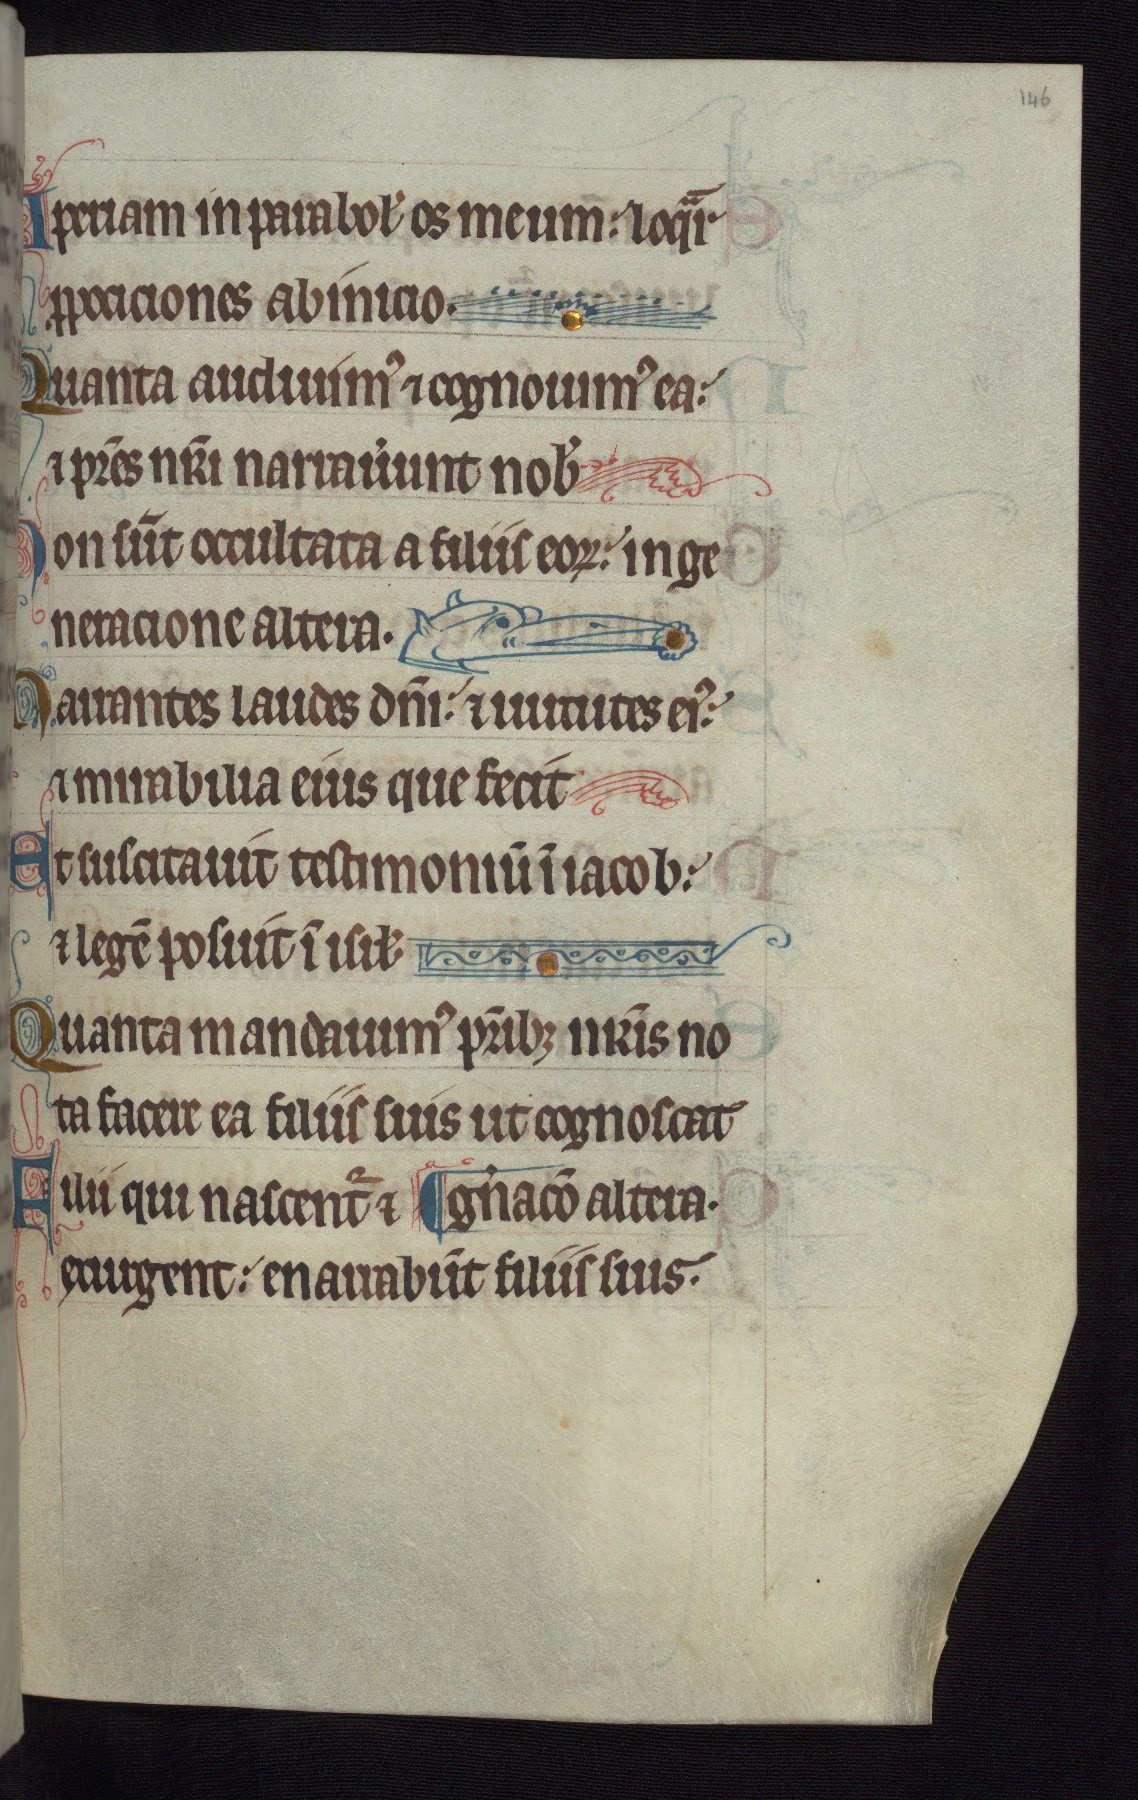 146
Aperiam in parabol̛ os meum: loqr̄
ꝓposiciones ab inicio.
Quanta audiuimꝰ ⁊ cognouimꝰ ea:
⁊ pr̄es nr̄i narraueru̅t nob̛
Non sūt occultata a filiis eoꝝ: in ge
neracione altera.
Narrantes laudes dn̄i: ⁊ uirtutes eiꝰ:
⁊ mirabilia eius que fecit
Et suscitauit testimoniū ī iacob:
⁊ legē posuit ī isrl̛
Quanta mandauimꝰ pr̄ibꝫ nr̄is no
ta facere ea filiis suis ut cognoscat
Filii qui nascent̄ ⁊ ¶ gn̄acō altera.
exurgent: enarrabūt filiis suis.